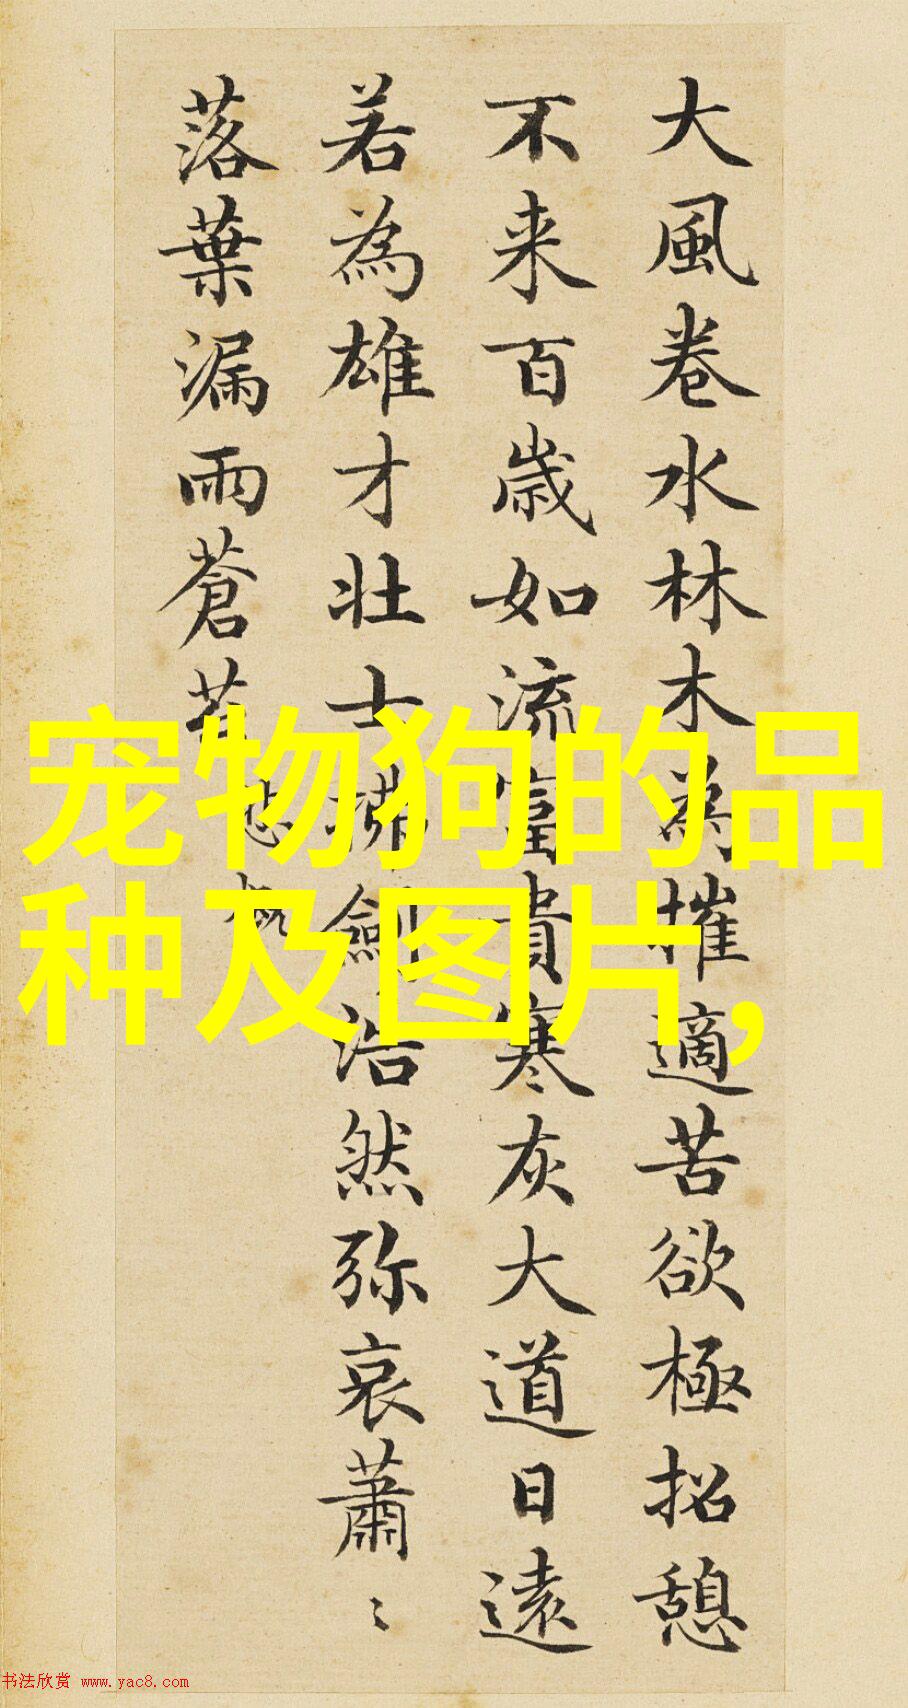 大風卷水林木為摧適苦欲極招憩
不来百歳如流富貴寒灰大道日遠
若為雄才壯士拂劍浩然弥哀蕭〻
落葉漏雨蒼苔
悲慨
宠物狗的品
种及图片,
书法欣赏 www.yac8.com